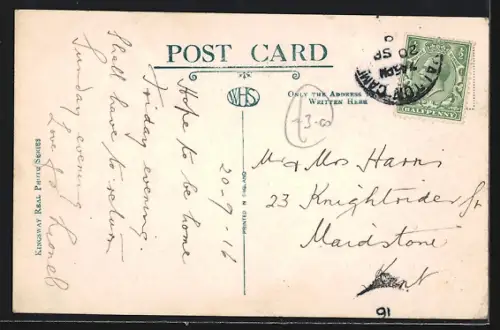 POST CARD
WHS
ONLY THE ADDRESS
WRITTEN HERE
KINGSWAY REAL PHOTO SERIES
PRINTED IN
20-9-16
Hope to be home
Friday evening.
Shall have to return
Sunday evening
Love Lionel
3-00
CAMP
7.45PM
20 SP
16
HALFPENNY
Mr & Mrs Harris
23 Knightrider St
Maidstone
Kent